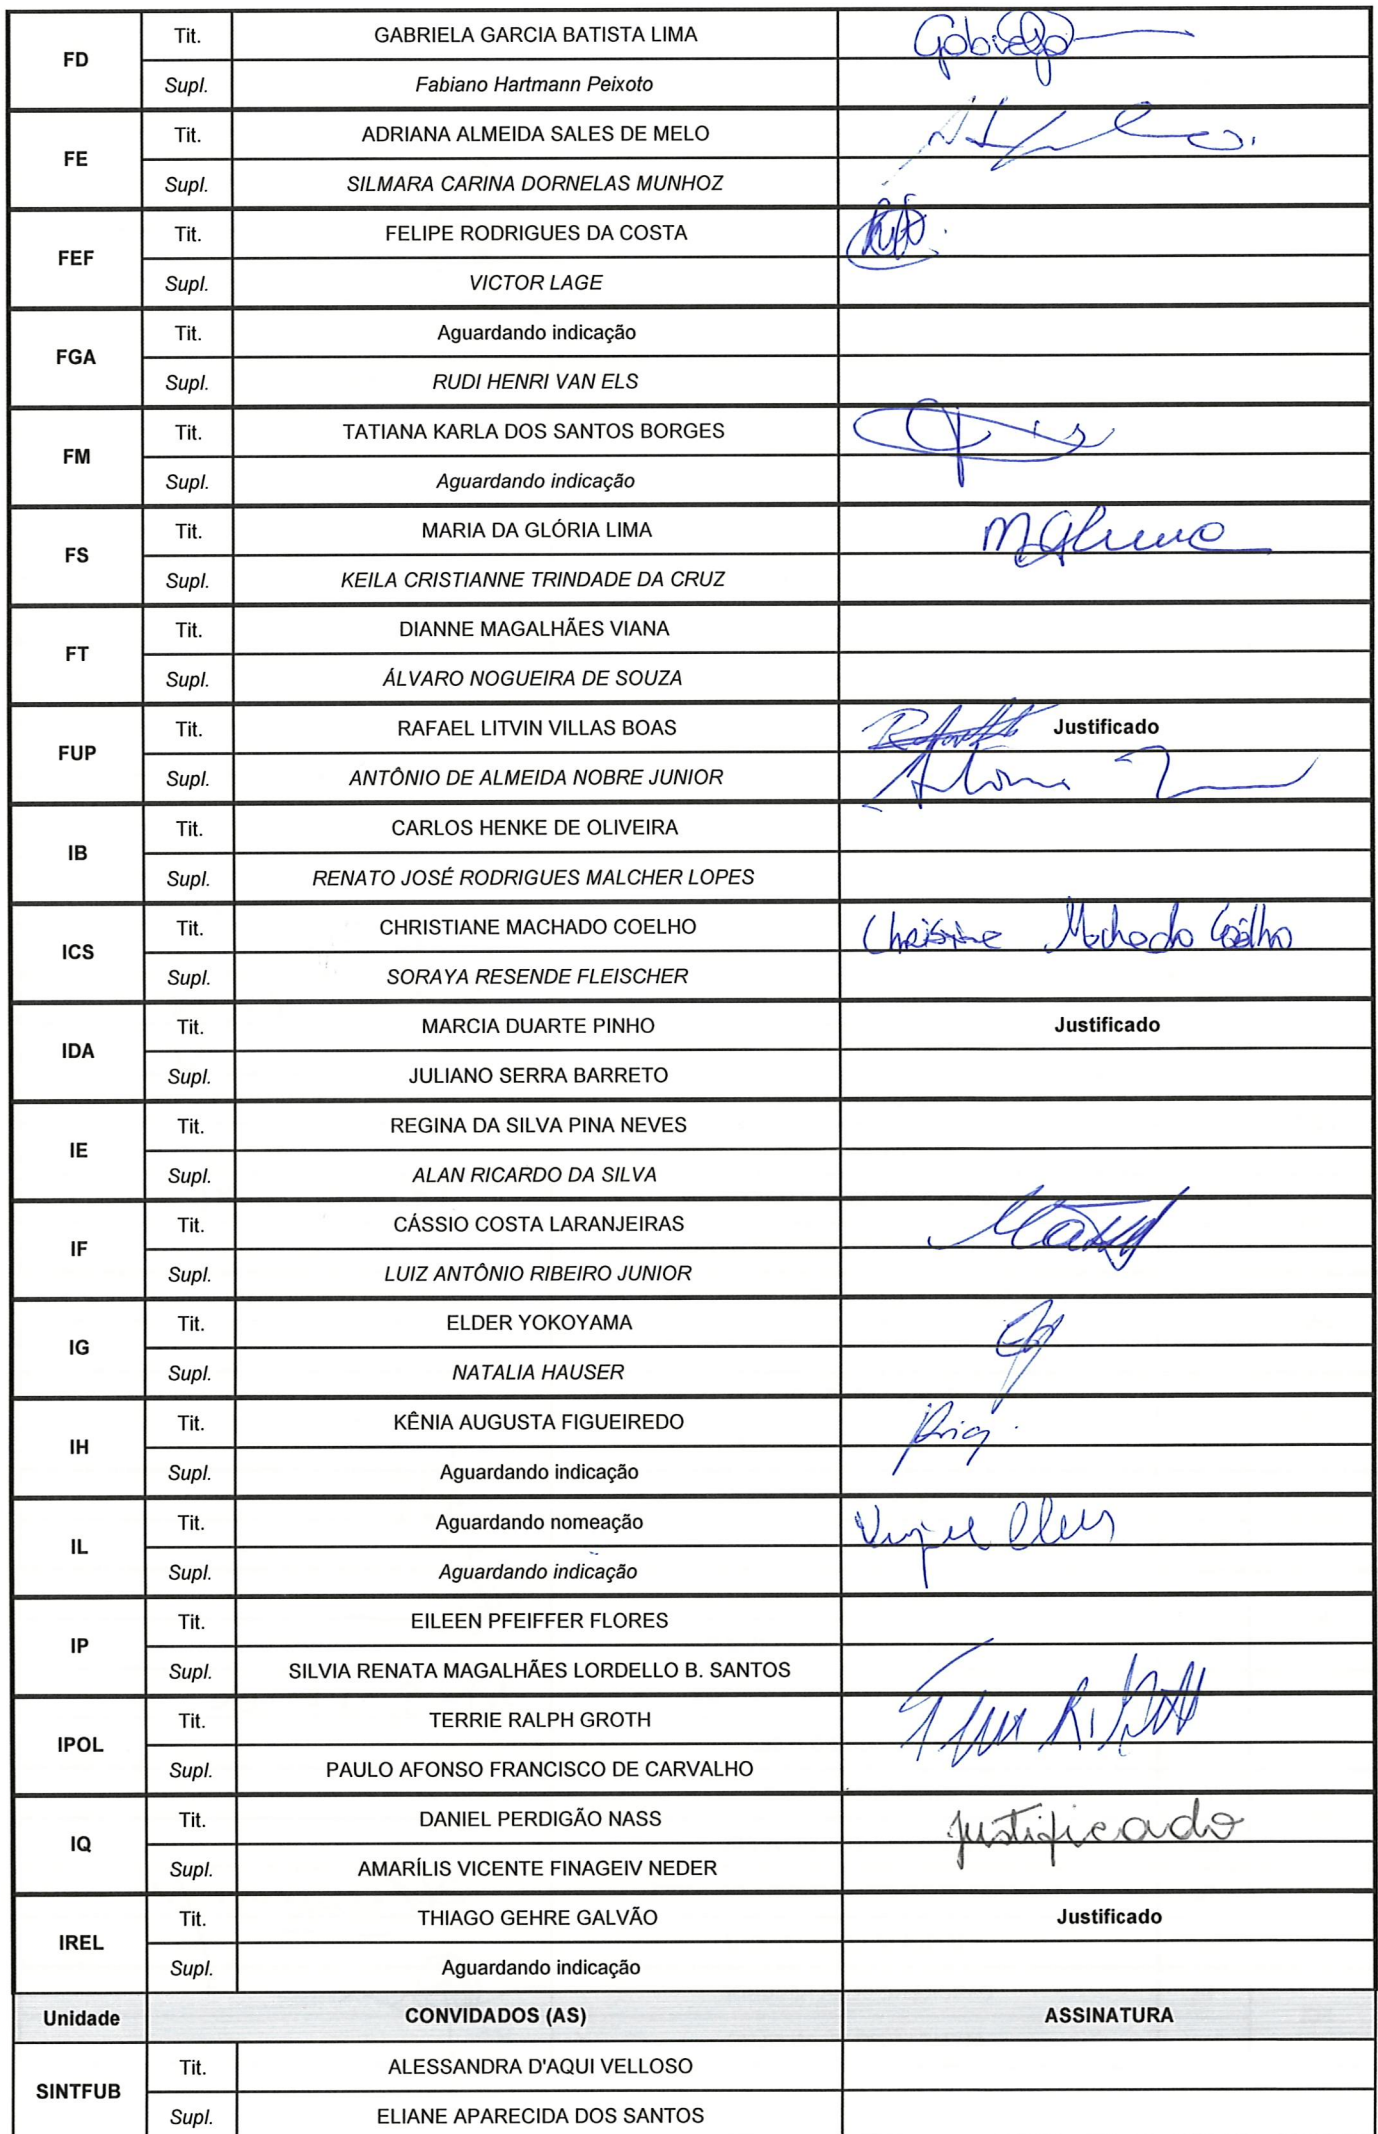 FD Tit. GABRIELA GARCIA BATISTA LIMA
Supl. Fabiano Hartmann Peixoto
FE Tit. ADRIANA ALMEIDA SALES DE MELO
Supl. SILMARA CARINA DORNELAS MUNHOZ
FEF Tit. FELIPE RODRIGUES DA COSTA
Supl. VICTOR LAGE
FGA Tit. Aguardando indicação
Supl. RUDI HENRI VAN ELS
FM Tit. TATIANA KARLA DOS SANTOS BORGES
Supl. Aguardando indicação
FS Tit. MARIA DA GLÓRIA LIMA
Supl. KEILA CRISTIANNE TRINDADE DA CRUZ
FT Tit. DIANNE MAGALHÃES VIANA
Supl. ÁLVARO NOGUEIRA DE SOUZA
FUP Tit. RAFAEL LITVIN VILLAS BOAS Justificado
Supl. ANTÔNIO DE ALMEIDA NOBRE JUNIOR
IB Tit. CARLOS HENKE DE OLIVEIRA
Supl. RENATO JOSÉ RODRIGUES MALCHER LOPES
ICS Tit. CHRISTIANE MACHADO COELHO Christiane Machado Coêlho
Supl. SORAYA RESENDE FLEISCHER
IDA Tit. MARCIA DUARTE PINHO Justificado
Supl. JULIANO SERRA BARRETO
IE Tit. REGINA DA SILVA PINA NEVES
Supl. ALAN RICARDO DA SILVA
IF Tit. CÁSSIO COSTA LARANJEIRAS
Supl. LUIZ ANTÔNIO RIBEIRO JUNIOR
IG Tit. ELDER YOKOYAMA
Supl. NATALIA HAUSER
IH Tit. KÊNIA AUGUSTA FIGUEIREDO
Supl. Aguardando indicação
IL Tit. Aguardando nomeação
Supl. Aguardando indicação
IP Tit. EILEEN PFEIFFER FLORES
Supl. SILVIA RENATA MAGALHÃES LORDELLO B. SANTOS
IPOL Tit. TERRIE RALPH GROTH
Supl. PAULO AFONSO FRANCISCO DE CARVALHO
IQ Tit. DANIEL PERDIGÃO NASS justificado
Supl. AMARÍLIS VICENTE FINAGEIV NEDER
IREL Tit. THIAGO GEHRE GALVÃO Justificado
Supl. Aguardando indicação
Unidade CONVIDADOS (AS) ASSINATURA
SINTFUB Tit. ALESSANDRA D'AQUI VELLOSO
Supl. ELIANE APARECIDA DOS SANTOS